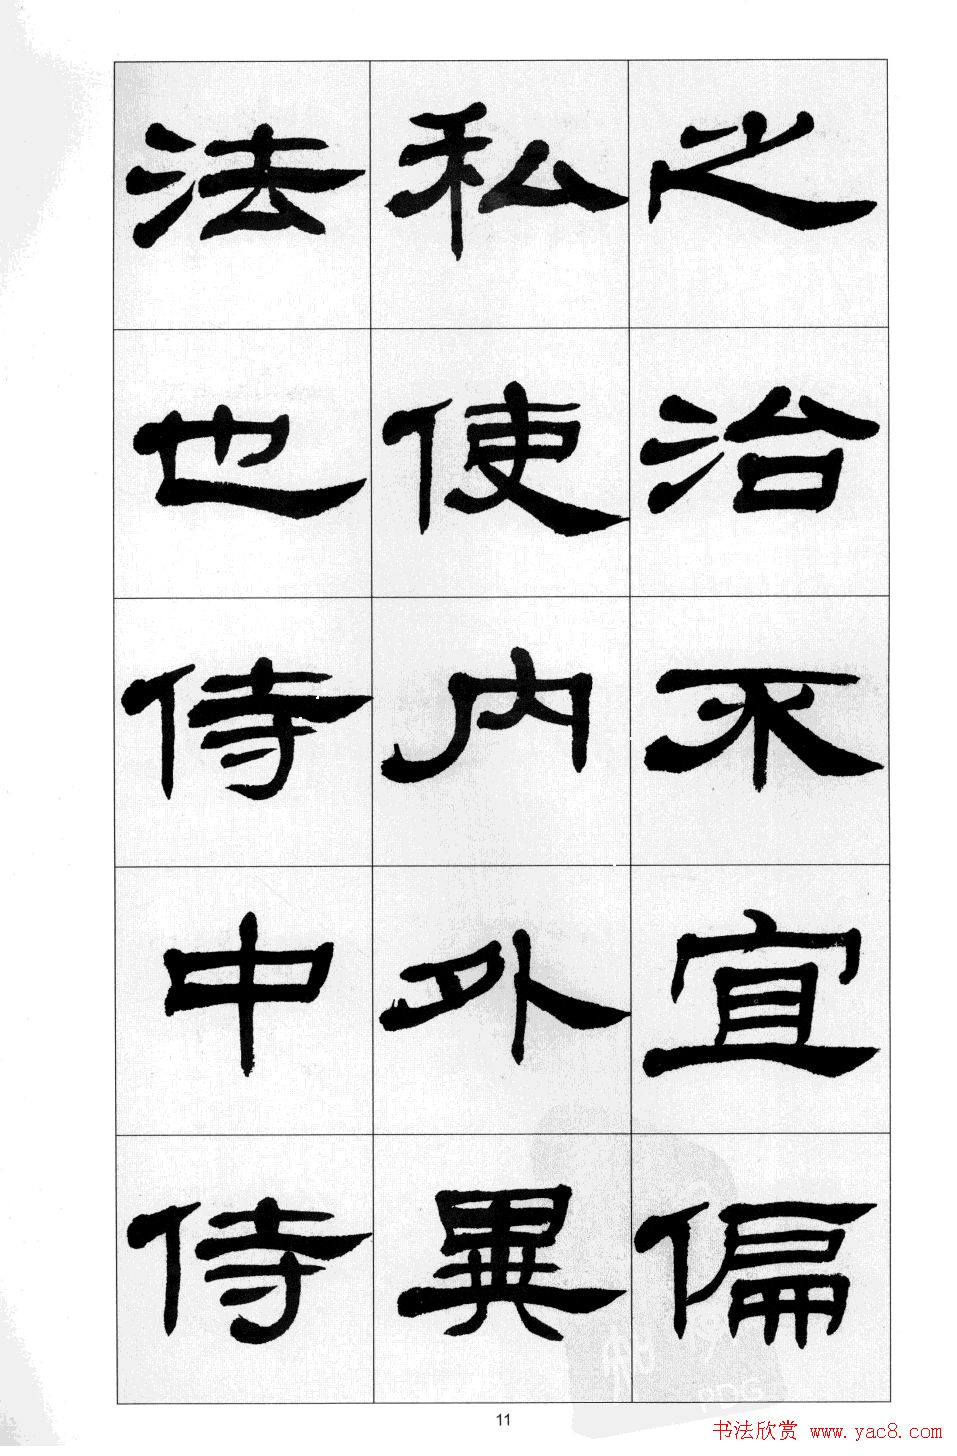 之治不宜偏
私使内外異
法也侍中侍
11
书法欣赏 www.yac8.com